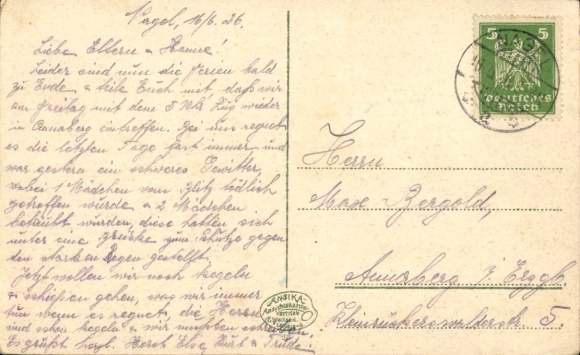 Nagel, 16/6. 26.
Liebe Eltern & Hanne!
Leider sind nun die Ferien bald
zu Ende & teile Euch mit, daß wir
am Freitag mit dem 5 Zug wieder
in Annaberg eintreffen. Bei uns regnet
es die letzten Tage fast immer und
war gestern ein schweres Gewitter,
wobei 1 Mädchen vom Blitz tödlich
getroffen wurde & 2 Mädchen
betäubt wurden, diese hatten sich
unter eine Brücke zum Schutze gegen
den starken Regen gestellt.
Jetzt wollen wir noch kegeln
& schießen gehen, was wir immer
tun wenn es regnet, die Herren
und schon kegeln & wir mußten
Es grüßt herzl. Horst Elsa Kurt &
NAGEL
5 5
Deutsches
Reich
Herrn
Max Bergold,
Annaberg i/ Erzgb.
5.
ANSIKA
Ansichtskarten
Vertrieb